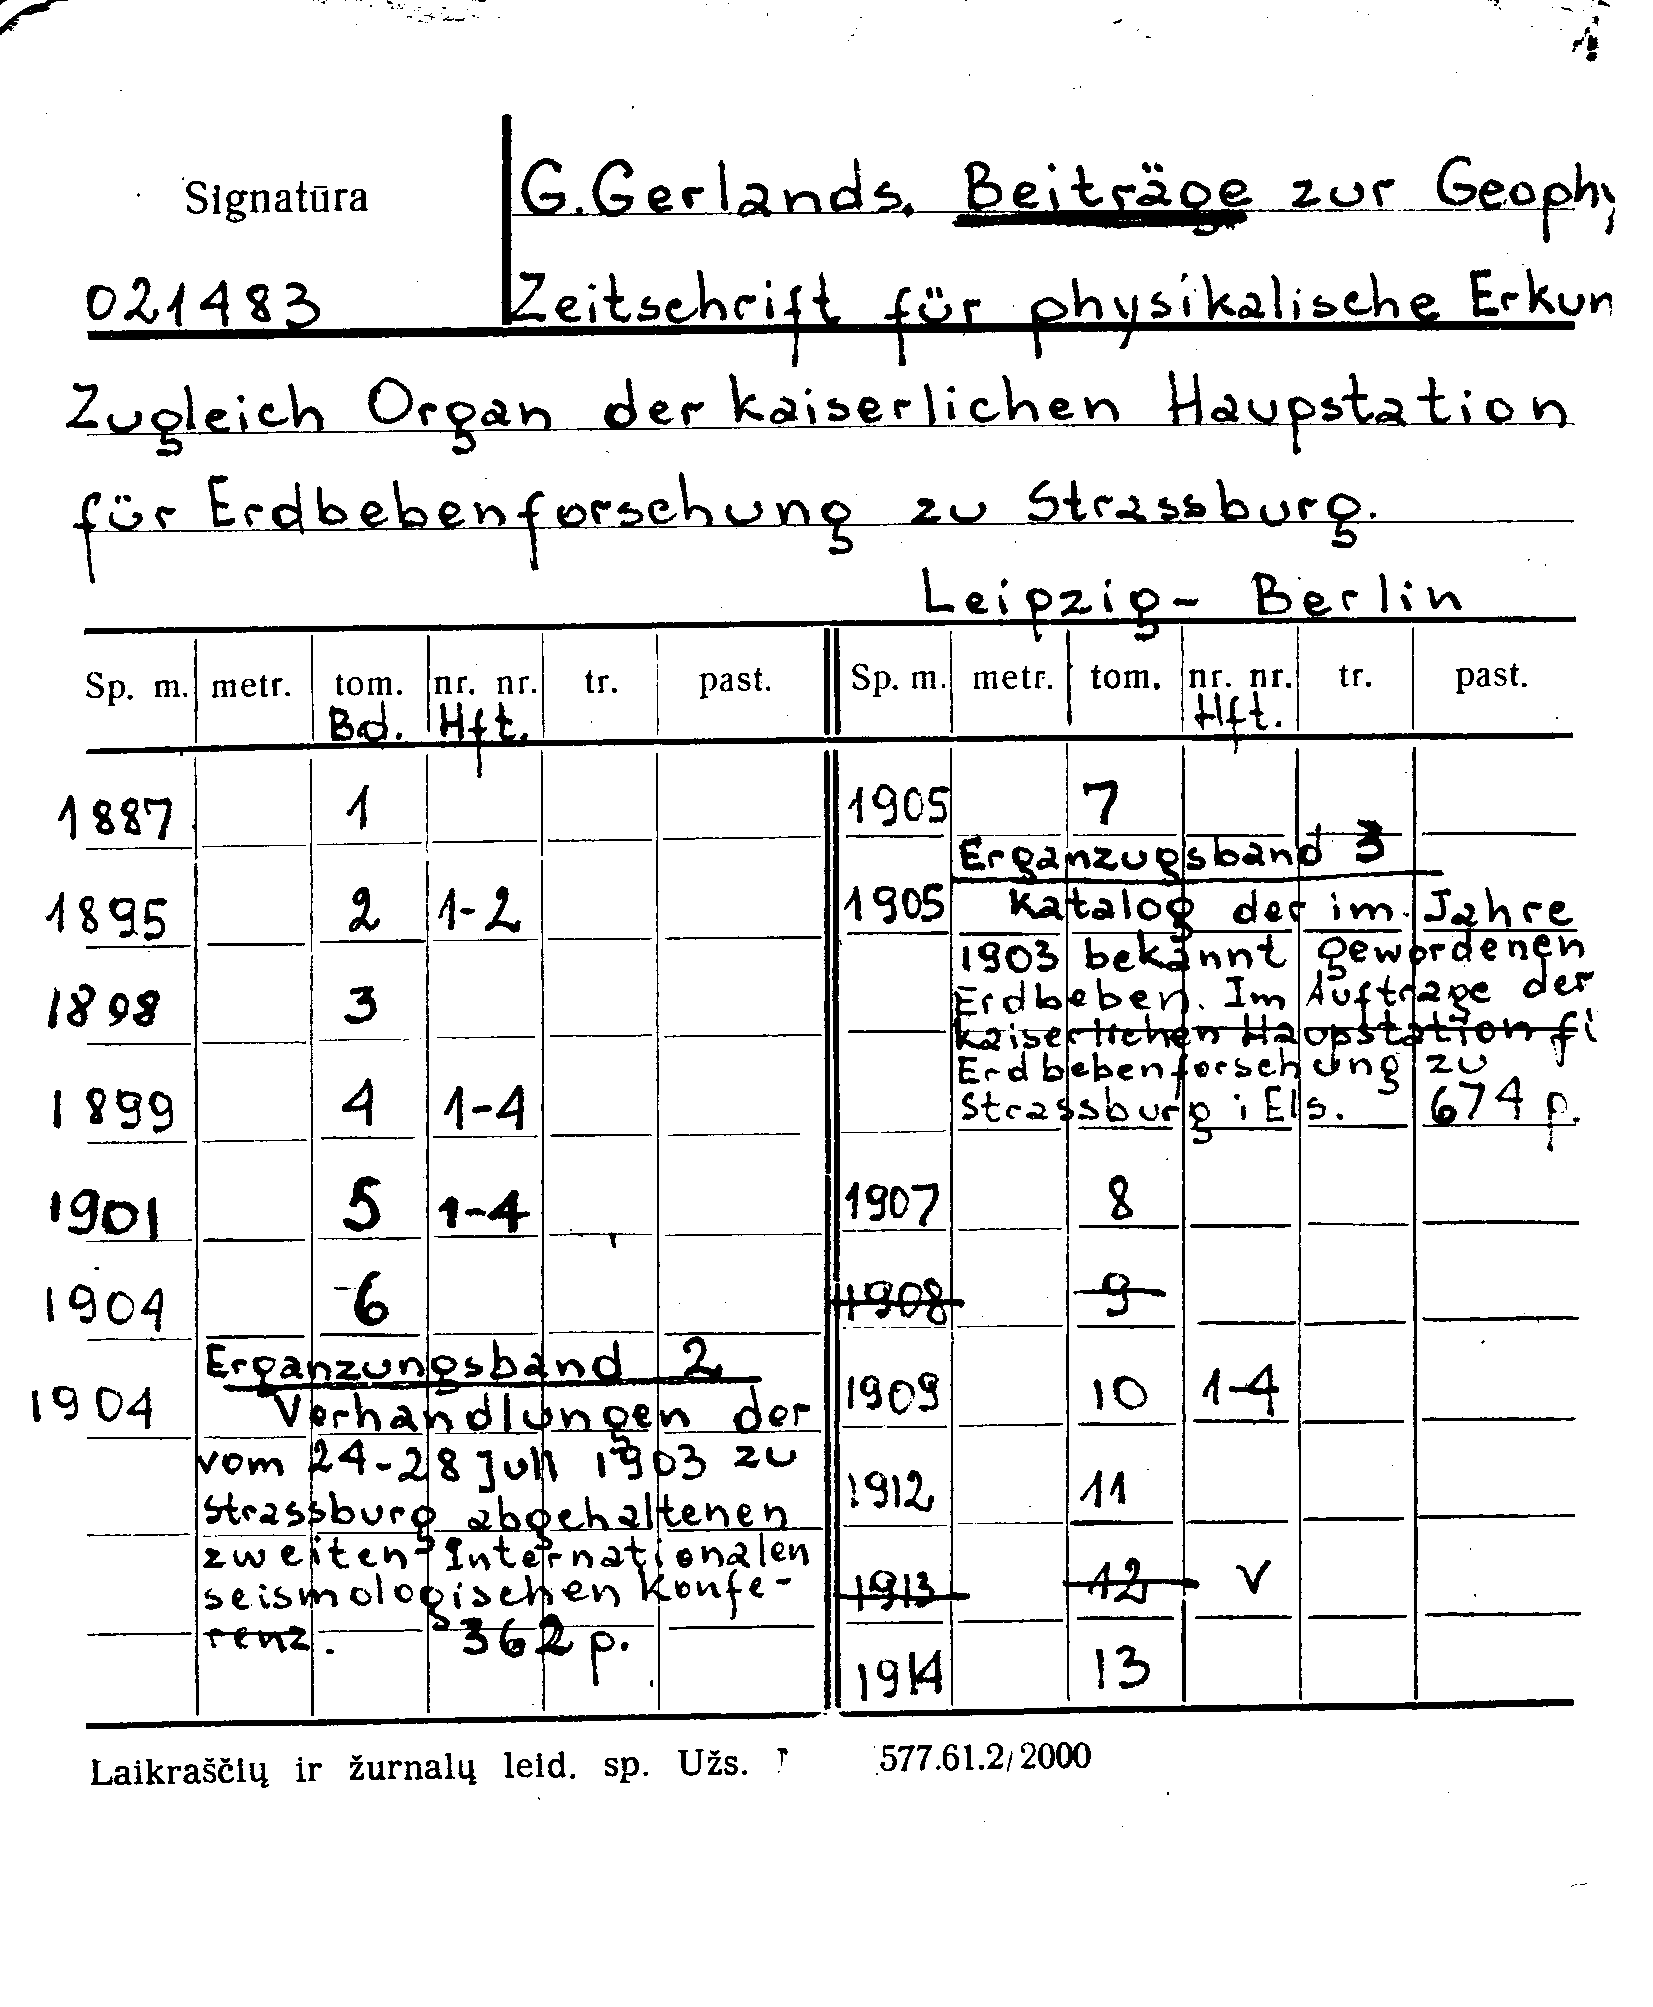 Signatūra
G. Gerlands. Beiträge zur Geophy
021483
Zeitschrift für physikalische Erkun
Zugleich Organ der kaiserlichen Haupstation
für Erdbebenforschung zu Strassburg.
Leipzig - Berlin
Sp. m. metr. tom. nr. nr. tr. past.
Bd. Hft.
1887 1
1895 2 1-2
1898 3
1899 4 1-4
1901 5 1-4
1904 6
Erganzungsband 2
1904 Verhandlungen der
vom 24-28 Juli 1903 zu
Strassburg abgehaltenen
zweiten Internationalen
seismologischen Konfe-
renz. 362 p.
Sp. m. metr. tom. nr. nr. tr. past.
Hft.
1905 7
Erganzugsband 3
1905 Katalog der im Jahre
1903 bekannt gewordenen
Erdbeben. Im Auftrage der
kaiserlichen Haupstation fü
Erdbebenforschung zu
Strassburg i Els. 674 p.
1907 8
1908 9
1909 10 1-4
1912 11
1913 12 v
1914 13
Laikraščių ir žurnalų leid. sp. Užs. 577.61.2/2000